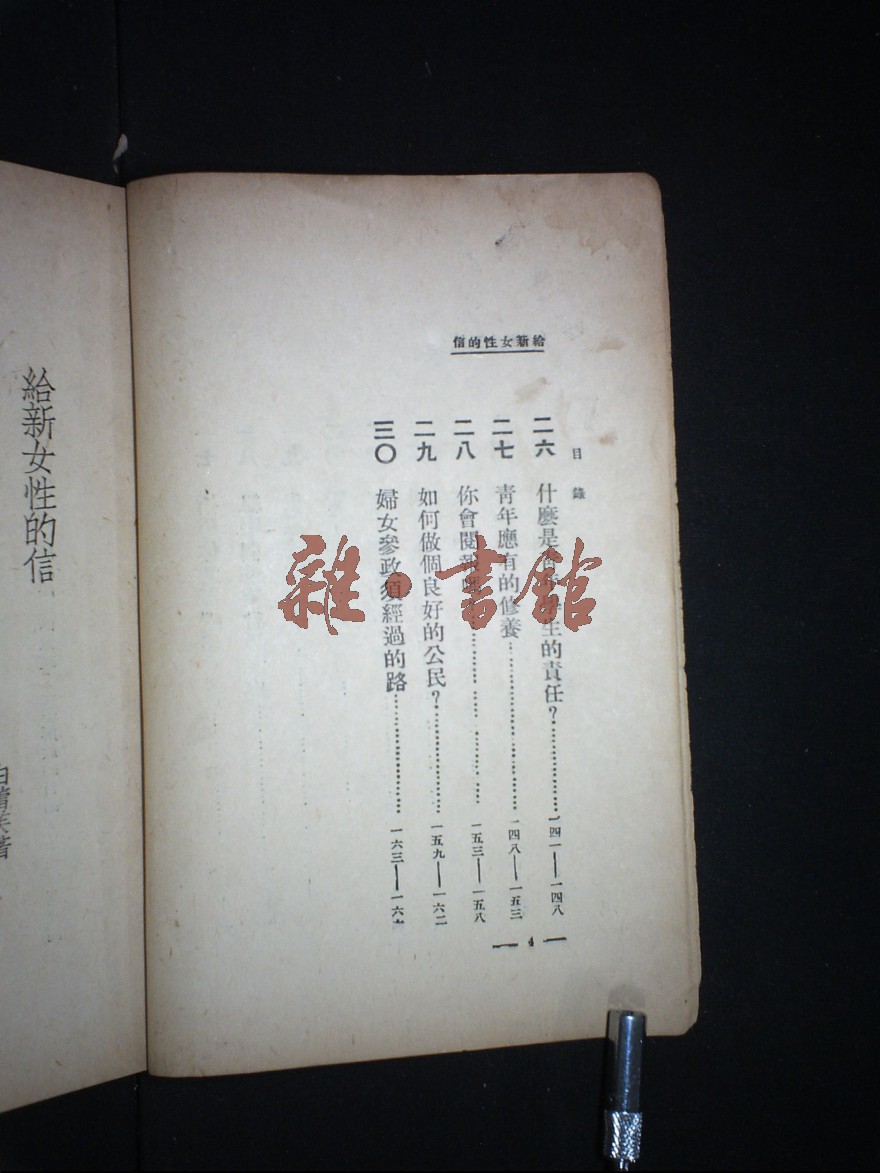 給新女性的信
目錄
二六 什麼是 生的責任？ 一四一——一四八
二七 青年應有的修養 一四八——一五三
二八 你會閱報 一五三——一五八
二九 如何做個良好的公民？ 一五九——一六二
三〇 婦女參政須經過的路 一六三——一六六
— 4 —
給新女性的信
著
雜·書館